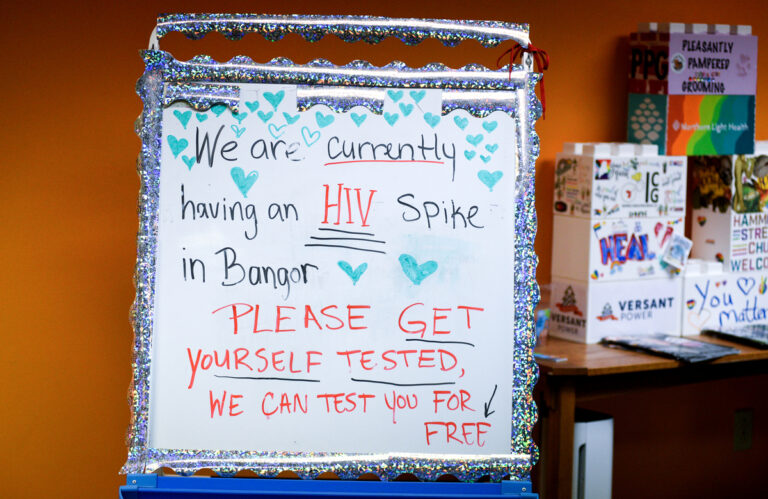 We are currently
having an HIV Spike
in Bangor
PLEASE GET
YOURSELF TESTED,
WE CAN TEST YOU FOR
FREE
PPG
PLEASANTLY
PAMPERED
GROOMING
Northern Light Health
HEAL
VERSANT
POWER
VERSANT
POWER
WELCO
You
Matter